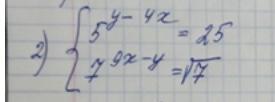 2) { 5^{y-4x} = 25
7^{9x-y} = √7